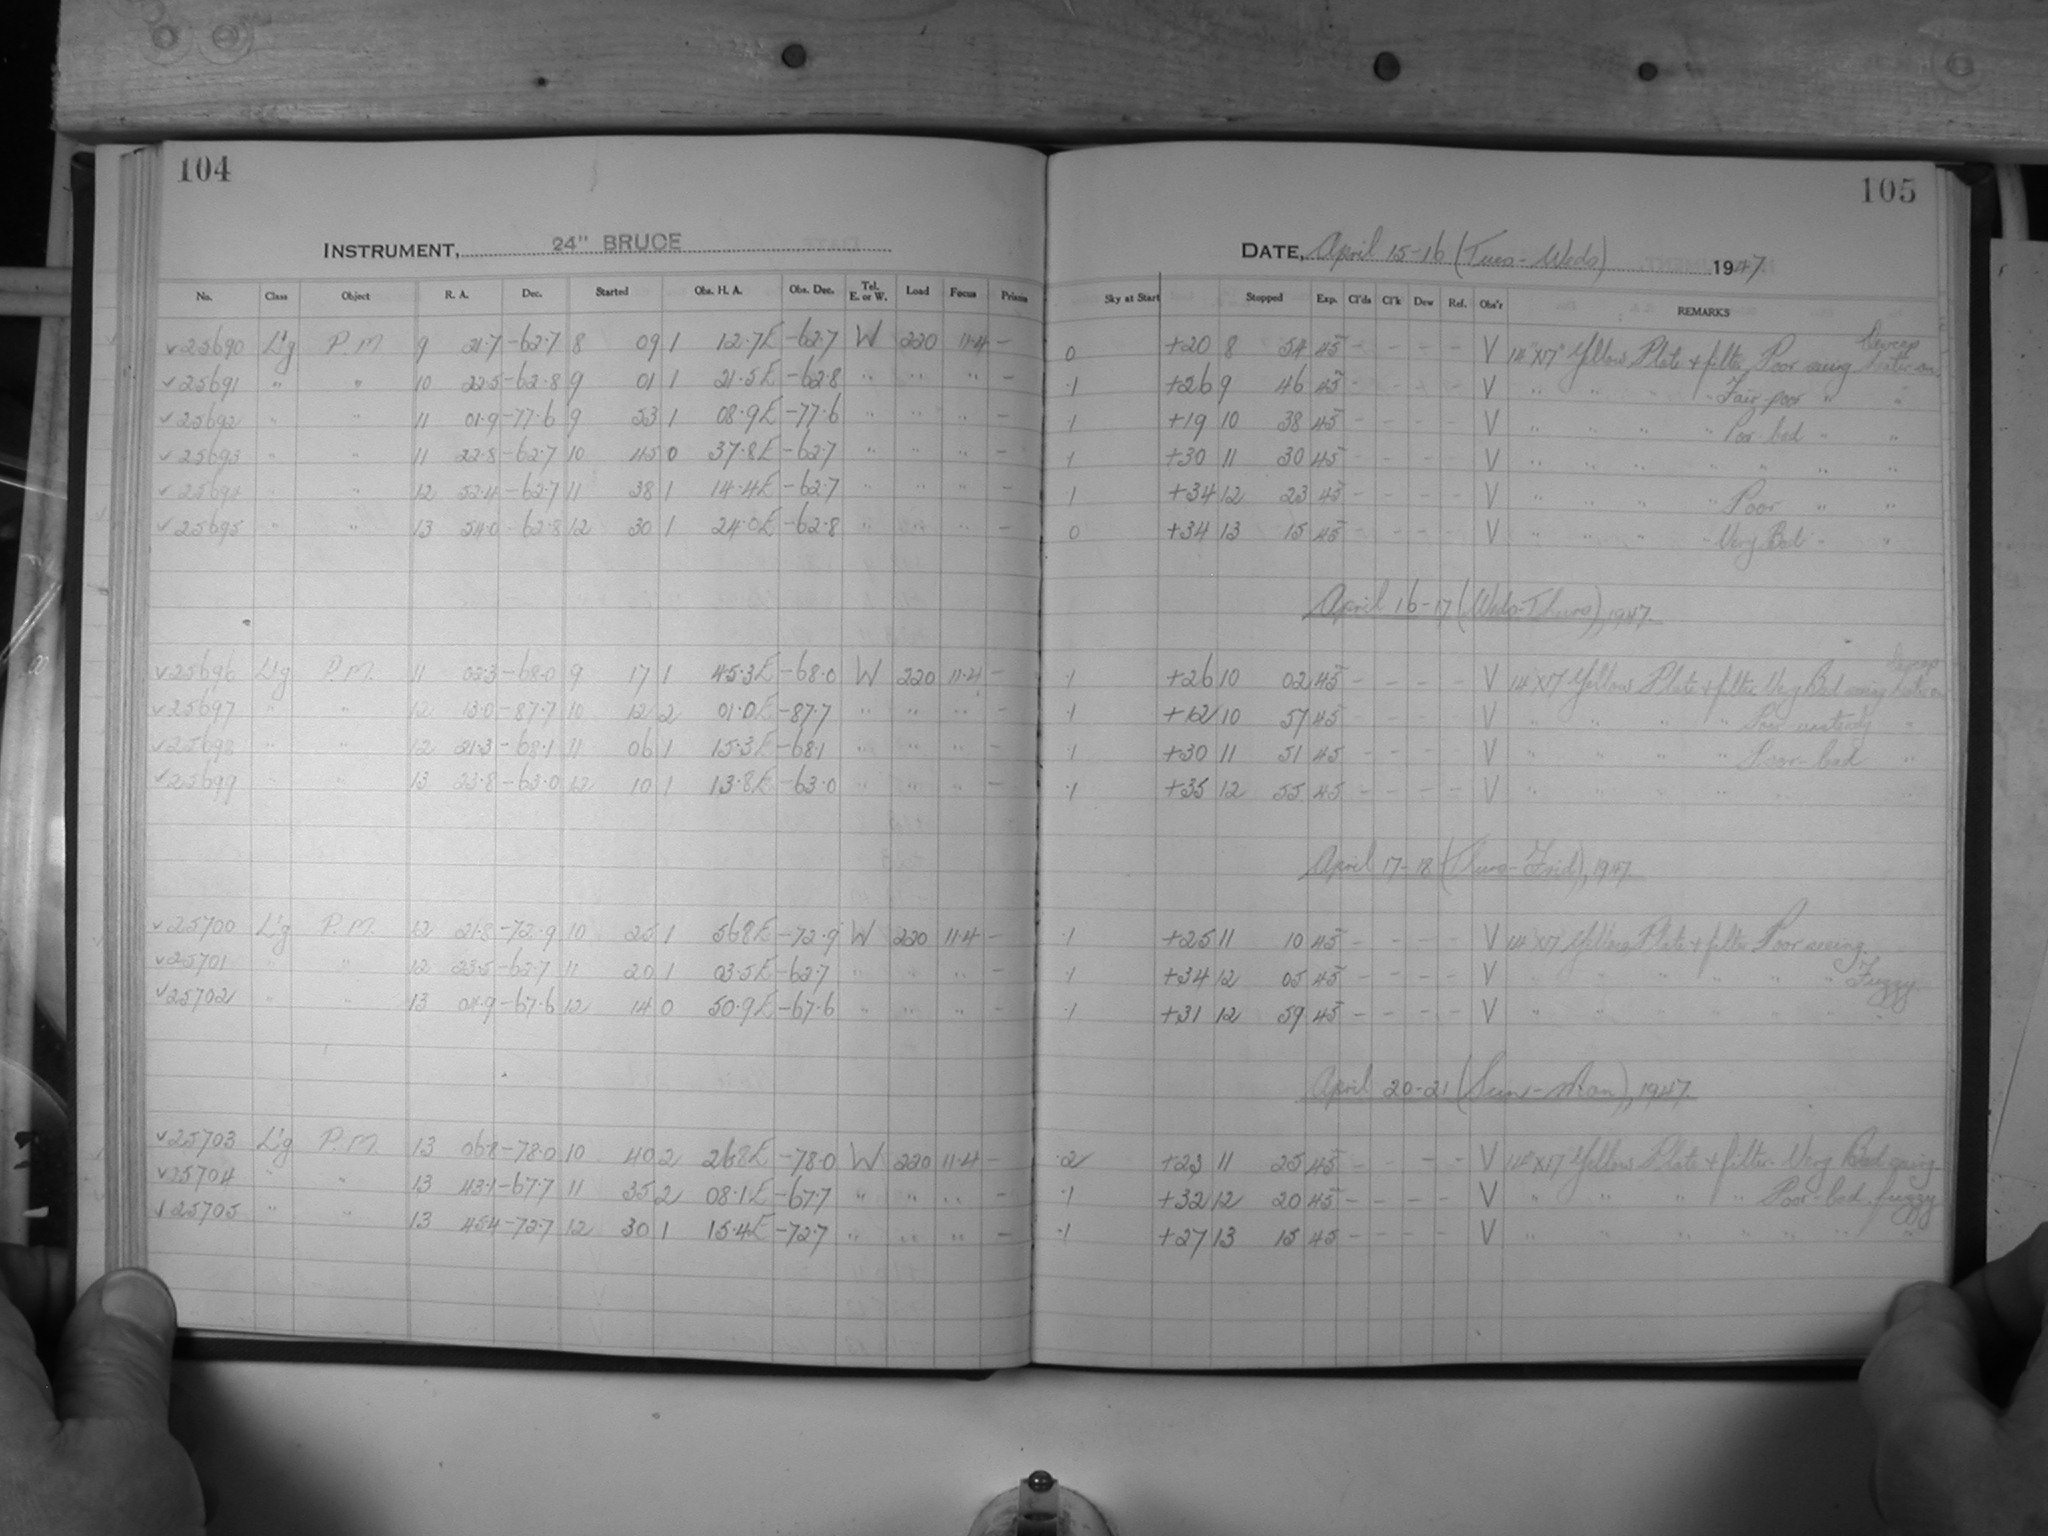 104
105
INSTRUMENT, 24" BRUCE
DATE, April 15-16 (Tues-Weds) 1947.
No. Class Object R. A. Dec. Started Obs. H. A. Obs. Dec. Tel. E. or W. Load Focus Prisms Sky at Start Stopped Exp. Cl'ds Cl'k Dew Ref. Obs'r REMARKS
25690 L'g P.M. 9 21.7 -62.7 8 09 1 12.7E -62.7 W 220 11.4 - 0 +20 8 54 45 - - - - V 14"x17" Yellow Plate + filter Poor seeing Dewcap heater on
25691 " " 10 22.5 -62.8 9 01 1 21.5E -62.8 " " " - .1 +26 9 46 45 - - - - V " " " " Fair-poor " "
25692 " " 11 01.9 -77.6 9 53 1 08.9E -77.6 " " " - .1 +19 10 38 45 - - - - V " " " " Poor-bad " "
25693 " " 11 22.8 -62.7 10 45 0 37.8E -62.7 " " " - .1 +30 11 30 45 - - - - V " " " " " " "
25694 " " 12 52.4 -62.7 11 38 1 14.4E -62.7 " " " - .1 +34 12 23 45 - - - - V " " " " Poor " "
25695 " " 13 54.0 -62.8 12 30 1 24.0E -62.8 " " " - 0 +34 13 15 45 - - - - V " " " " Very Bad " "
April 16-17 (Weds-Thurs), 1947.
25696 L'g P.M. 11 02.3 -68.0 9 17 1 45.3E -68.0 W 220 11.4 - .1 +26 10 02 45 - - - - V 14"x17" Yellow Plate + filter Very Bad seeing Dewcap heater on
25697 " " 12 13.0 -87.7 10 12 2 01.0E -87.7 " " " - .1 +12 10 57 45 - - - - V " " " " Poor unsteady "
25698 " " 12 21.3 -68.1 11 06 1 15.3E -68.1 " " " - .1 +30 11 51 45 - - - - V " " " " Poor-bad "
25699 " " 13 23.8 -63.0 12 10 1 13.8E -63.0 " " " - .1 +35 12 55 45 - - - - V " " " " " "
April 17-18 (Thurs-Frid), 1947.
25700 L'g P.M. 12 21.8 -72.9 10 25 1 56.8E -72.9 W 220 11.4 - .1 +25 11 10 45 - - - - V 14"x17" Yellow Plate + filter Poor seeing
25701 " " 12 23.5 -62.7 11 20 1 03.5E -62.7 " " " - .1 +34 12 05 45 - - - - V " " " " " " Fuzzy
25702 " " 13 04.9 -67.6 12 14 0 50.9E -67.6 " " " - .1 +31 12 59 45 - - - - V " " " " " " "
April 20-21 (Sun-Mon), 1947.
25703 L'g P.M. 13 06.8 -78.0 10 40 2 26.8E -78.0 W 220 11.4 - .2 +23 11 25 45 - - - - V 14"x17" Yellow Plate + filter Very Bad seeing
25704 " " 13 43.1 -67.7 11 35 2 08.1E -67.7 " " " - .1 +32 12 20 45 - - - - V " " " " Poor-bad fuzzy
25705 " " 13 45.4 -72.7 12 30 1 15.4E -72.7 " " " - .1 +27 13 15 45 - - - - V " " " " " "